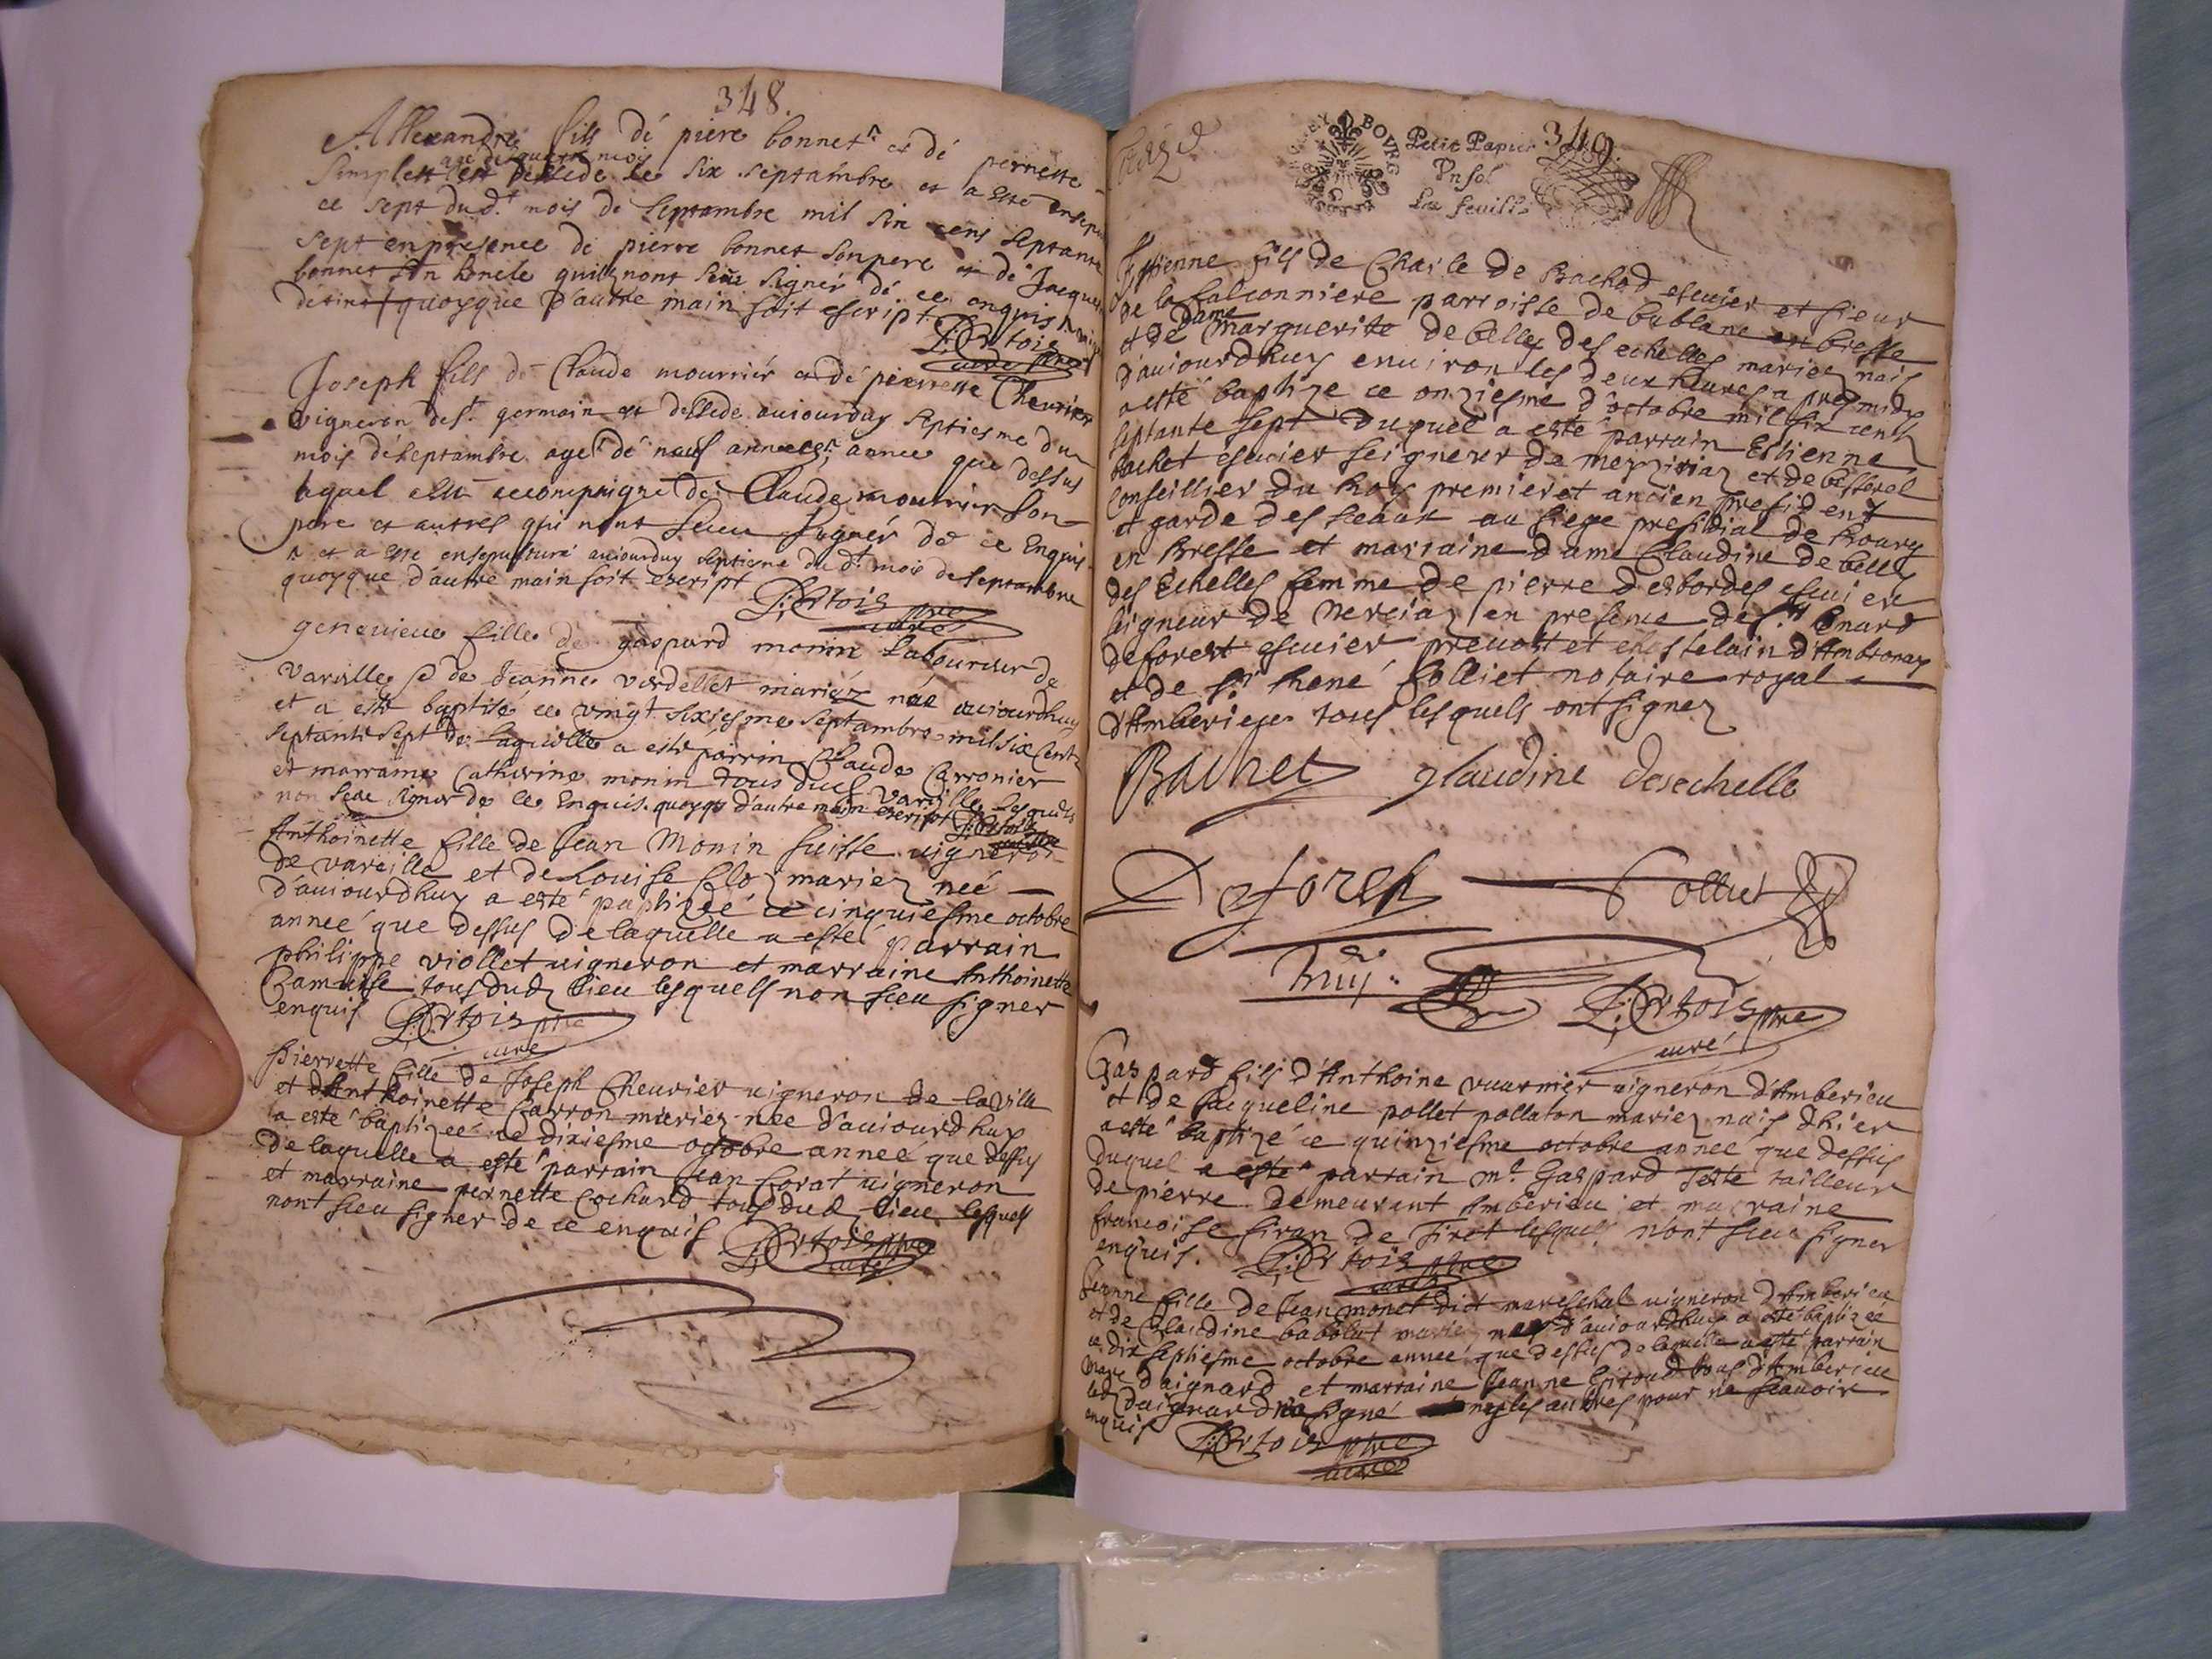 348.
Allexandre fils dé piere bonnet et dé pernette
agé de quatre mois
Simplett est decede le six septambre et a esté ensepu
ce sept du d.t mois de Septambre mil six cens septante
sept en presence de pierre bonnet son pere et dé Jacques
bonnet son honcle quilz nont seu signér dé ce enquis
quoyque d'autre main soit escript
P: Ertois
curé
Joseph fils de Claude mourriér et dé pierrette Cheurier
vigneron de s.t germain est deccede aujourduy septiesme du
mois dé septambre agé dé neuf années, année que dessus
lequel a este accompaigné de Claude mourrier son
pere et autres qui nont sceu signér de ce enquis
et a este ensepulturé aujourduy septiesme du d.t mois de septambre
quoyque d'autre main soit escript
P: Ertois pre
curé
genevieue fille de gaspard monin Laboureur de
Vareille et de Jeanne verdellet mariéz née aujourdhuy
et a esté baptisé ce vingt sixiesme septambre mil six cent
septante sept de laquelle a esté parrin Claude Carronier
et marraine Catherine monin tous dud Vareille Lesquels
non seeu signer de ce Enquis. quoyque d'autre main escript P: Ertois
Anthoinette fille de Jean Monin suisse uigneron
de vareille et de Louise Cloz mariez née
d'aujourdhuy a esté baptizeé ce cinquiesme octobre
anneé que dessus de laquelle a esté parrain
philippe viollet uigneron et marraine Anthoinette
tous dud lieu lesquells non sceu signer
enquis P: Ertois pre
curé
Pierrette fille de Joseph Cheurier uigneron de la Ville
et d'Anthoinette Carron mariez née d'aujourdhuy
a esté baptizeé ce dixiesme octobre annee que dessus
de laquelle a esté parrain Jean Corat uigneron
et marraine pernette Cochard tous dud lieu lesquels
nont sceu signer de ce enquis P: Ertois pre
curé
349.
BOVRG
Petit Papier
Vn sol
La feuille
Estienne fils de Charle de Bachod escuier et sieur
de la falconniere parroisse de bublane en bresse
Dame
et de marguerite de belly des echelles mariez nais
d'aujourdhuy enuiron les deux heures apres midy
a esté baptize ce onziesme d'octobre mil six cent
septante sept Duquel a esté parrain Estienne
bachet escuier seigneur de meyziriaz et de
Conseillier du Roy premier et ancien president
et garde des sceaux au siege presidial de Bourg
en Bresse et marraine Dame Claudine de belly
des Echelles femme de pierre desbordes escuier
seigneur de Nerciaz en presence de s.r
deforest escuier preuost et chastelain d'Ambronay
et de s.r René folliet notaire royal
d'Amberieu tous lesquels ont signez
Bachet glaudine desechelle
Deforest folliet
P: Ertois pre
curé
Gaspard fils d'Anthoine vuarnier uigneron d'Amberieu
et de Jacqueline pollet pollaton mariez nais d'hier
a esté baptizé ce quinziesme octobre anneé que dessus
duquel a esté parrain m.e Gaspard Teste tailleur
de pierre demeurant Amberieu et marraine
francoise siran de Tiret lesquels n'ont sceu signer
enquis. P: Ertois pre
curé
Jeanne fille de Jean monet dict mareschal uigneron d'Amberieu
et de Claudine babolat mariez nee d'aujourdhuy a esté baptizeé
ce dix septiesme octobre anneé que dessus de laquelle a esté parrain
Marc daignard et marraine Jeanne Giroud tous d'Amberieu
led daignard signé les autres pour ne scauoir
enquis P: Ertois pre
curé